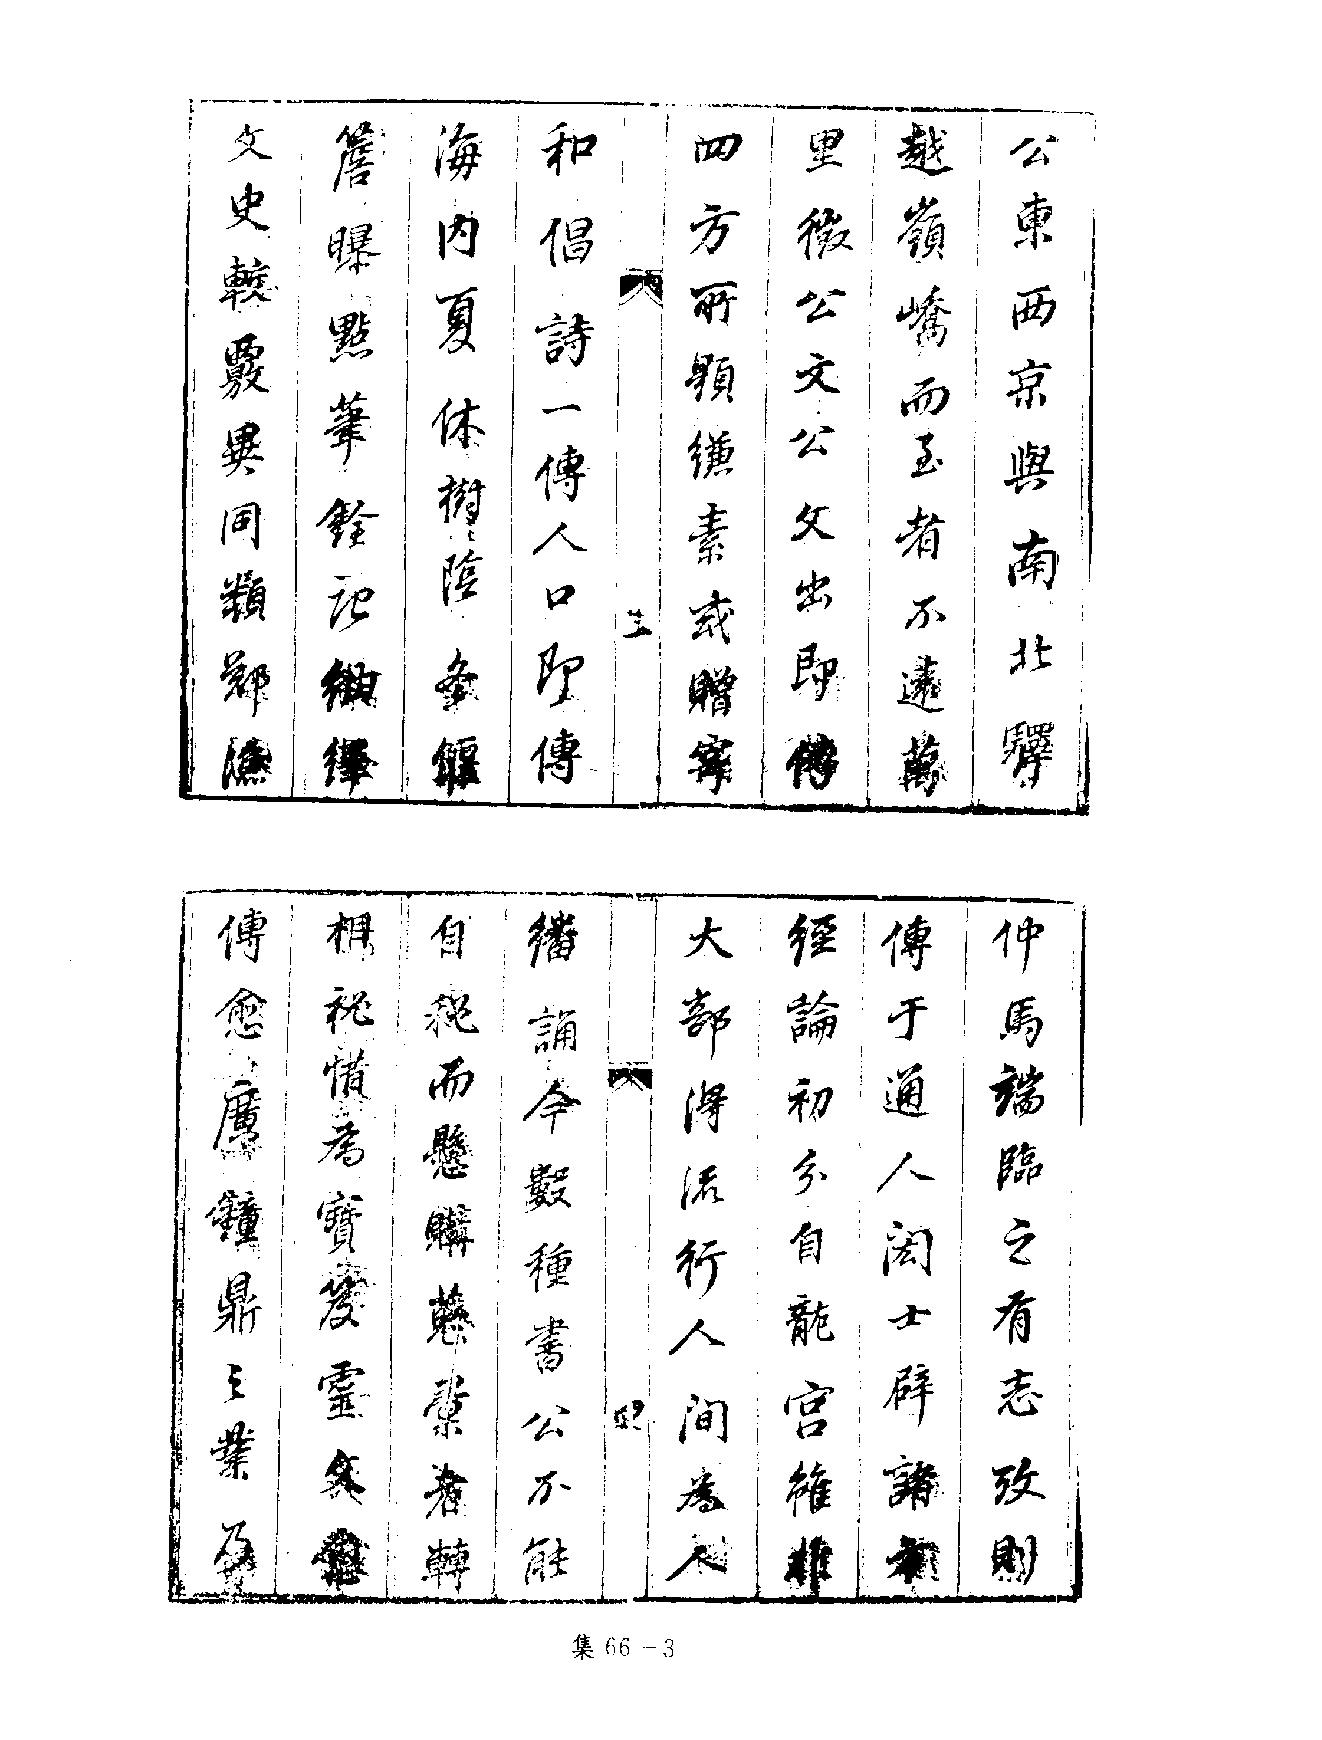 公東西京與南北驛
越嶺嶠而至者不遠萬
里徵公文公文出即傳
四方所顆縑素或贈寄
和倡詩一傳人口即傳
海内夏休樹陰冬偃
簷曝點筆銓記紬繹
文史較覈異同類鄭漁
仲馬端臨之有志攷則
傳于通人閎士辟諸
經論初分自龍宮雖非
大部得流行人間為人
繙誦今數種書公不能
自秘而懸購蓺藁者轉
相祕惜為寶笈靈文
傳愈廣鐘鼎之業乃
集 66 - 3